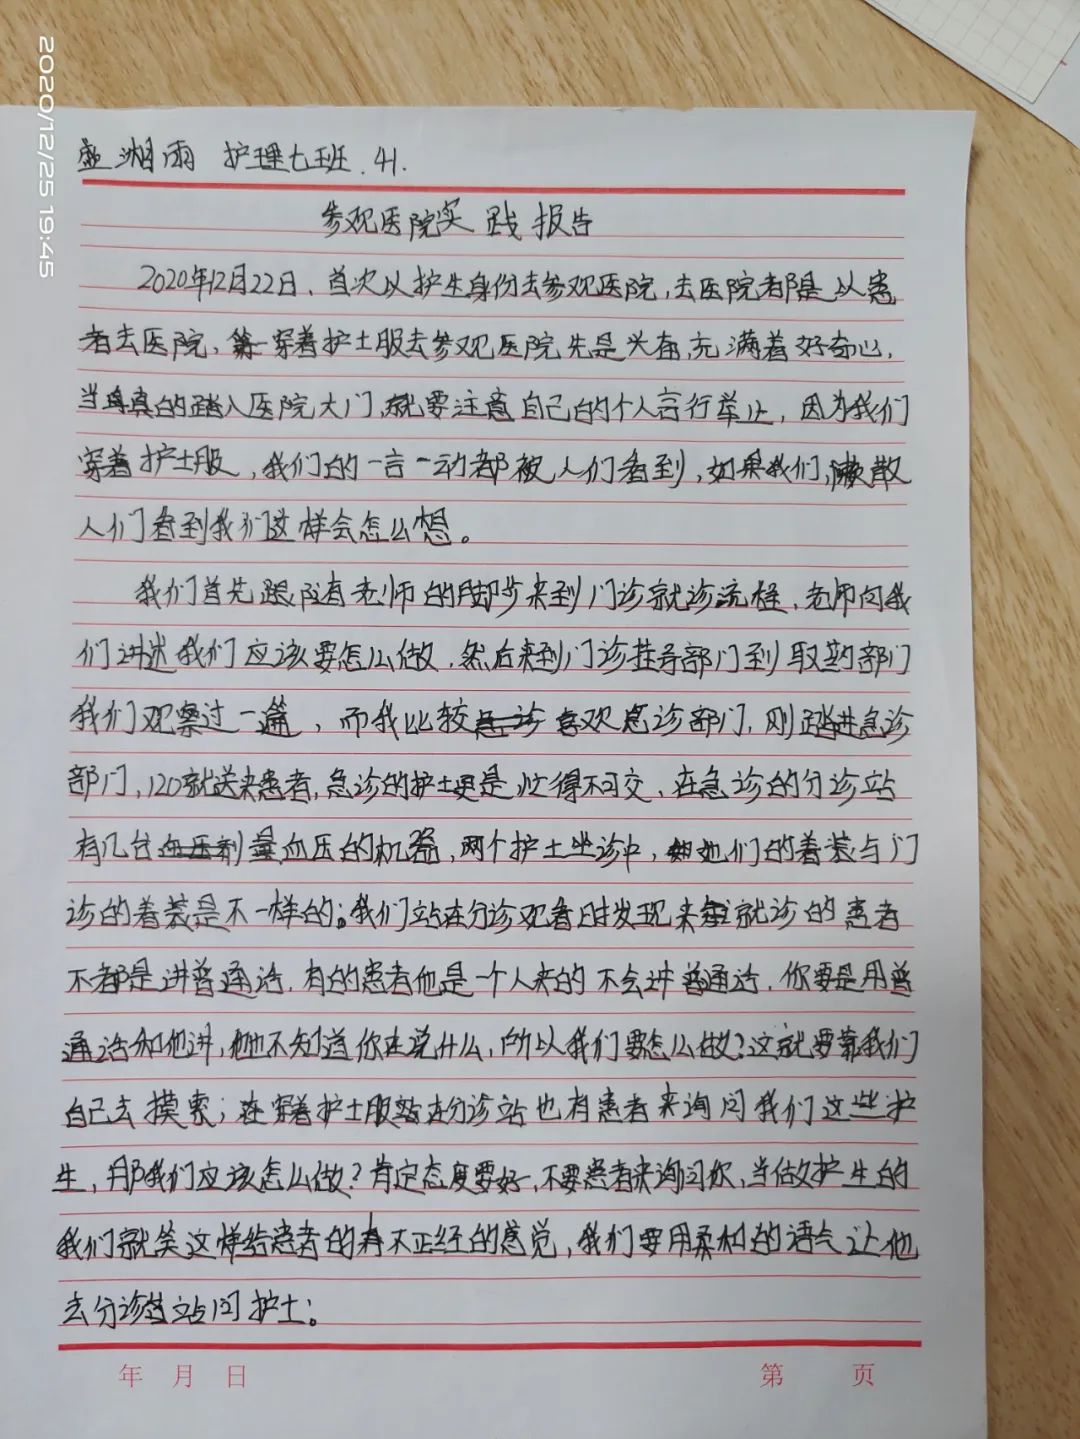 2020/12/25 19:45
盛湘雨 护理七班.41.
参观医院实践报告
2020年12月22日、首次以护生身份去参观医院,去医院都是以患
者去医院、穿着护士服去参观医院先是兴奋,充满着好奇心,
当真的踏入医院大门,就要注意自己的个人言行举止,因为我们
穿着护士服,我们的一言一动都被人们看到,如果我们懒散
人们看到我们这样会怎么想。
我们首先跟随着老师的脚步来到门诊就诊流程,老师向我
们讲述我们应该要怎么做,然后来到门诊挂号部门到取药部门
我们观察过一遍,而我比较喜欢急诊部门,刚踏进急诊
部门,120就送来患者,急诊的护士更是忙得不可交、在急诊的分诊站
有几台量血压的机器,两个护士坐诊中,她们的着装与门
诊的着装是不一样的;我们站在分诊观看时发现来就诊的患者
不都是讲普通话,有的患者他是一个人来的不会讲普通话,你要是用普
通话和他讲,他不知道你在说什么,所以我们要怎么做?这就要靠我们
自己去摸索;在穿着护士服站在分诊站也有患者来询问我们这些护
生,那我们应该怎么做?肯定态度要好,不要患者来询问你,当做护生的
我们就笑这样给患者的有不正经的感觉,我们要用柔和的语气让他
去分诊站问护士;
年 月 日
第 页